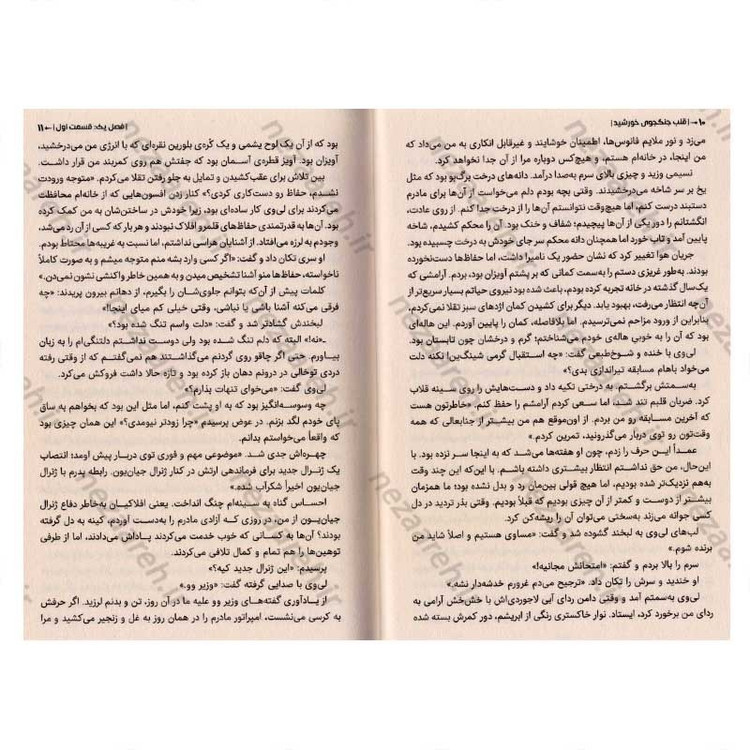 ۱۰ | قلب جنگجوی خورشید |
می‌زد و نور ملایم فانوس‌ها، اطمینان خوشایند و غیرقابل انکاری به من می‌داد که
من اینجا، در خانه‌ام هستم، و هیچ‌کس دوباره مرا از آن جدا نخواهد کرد.
نسیمی وزید و چیزی بالای سرم به‌صدا درآمد. دانه‌های درخت برگ‌بو بود که مثل
یخ بر سر شاخه می‌درخشیدند. وقتی بچه بودم دلم می‌خواست از آن‌ها برای مادرم
دستبند درست کنم، اما هیچ‌وقت نتوانستم آن‌ها را از درخت جدا کنم. از روی عادت،
انگشتانم را دور یکی از آن‌ها پیچیدم؛ شفاف و خنک بود. آن را محکم کشیدم، شاخه
پایین آمد و تاب خورد اما همچنان دانه محکم سر جای خودش به درخت چسبیده بود.
جریان هوا تغییر کرد که نشان حضور یک نامیرا داشت، اما حفاظ‌ها دست‌نخورده
بودند. به‌طور غریزی دستم را به‌سمت کمانی که بر پشتم آویزان بود، بردم. آرامشی که
یک‌سال گذشته در خانه تجربه کرده بودم، باعث شده بود نیروی حیاتم بسیار سریع‌تر از
آن‌چه انتظار می‌رفت، بهبود یابد. دیگر برای کشیدن کمان اژدهای سبز تقلا نمی‌کردم،
بنابراین از ورود مزاحم نمی‌ترسیدم. اما بلافاصله، کمان را پایین آوردم. این هاله‌ای
بود که آن را به خوبی هاله‌ی خودم می‌شناختم؛ گرم و درخشان چون تابستان بود.
لی‌وی با خنده و شوخ‌طبعی گفت: «چه استقبال گرمی شینگ‌ین! نکنه دلت
می‌خواد باهام مسابقه تیراندازی بدی؟»
به‌سمتش برگشتم. به درختی تکیه داد و دست‌هایش را روی سینه قلاب
کرد. ضربان قلبم تند شد، اما سعی کردم آرامشم را حفظ کنم. «خاطرتون هست
که آخرین مسابقه رو من بردم. از اون‌موقع هم من بیشتر از جنابعالی که همه
وقت‌تون رو توی دربار می‌گذرونید، تمرین کردم.»
عمداً این حرف را زدم، چون او هفته‌ها می‌شد که به اینجا سر نزده بود. با
این‌حال، من حق نداشتم انتظار بیشتری داشته باشم. با این‌که این چند وقت
به‌هم نزدیک‌تر شده بودیم، اما هیچ قولی بین‌مان رد و بدل نشده بود؛ ما همزمان
بیشتر از دوست و کمتر از آن چیزی بودیم که قبلاً بودیم. وقتی بذر تردید در دل
کسی جوانه می‌زند به‌سختی می‌توان آن را ریشه‌کن کرد.
لب‌های لی‌وی به لبخند گشوده شد و گفت: «مساوی هستیم و اصلاً شاید من
برنده شوم.»
سرم را بالا بردم و گفتم: «امتحانش مجانیه!»
او خندید و سرش را تکان داد. «ترجیح می‌دم غرورم خدشه‌دار نشه.»
لی‌وی به‌سمتم آمد و وقتی دامن ردای آبی لاجوردی‌اش با خش‌خش آرامی به
ردای من برخورد کرد، ایستاد. نوار خاکستری رنگی از ابریشم، دور کمرش بسته شده
| فصل یک: قسمت اول | ۱۱
بود که از آن یک لوح یشمی و یک گره‌ی بلورین نقره‌ای که با انرژی من می‌درخشید،
آویزان بود. آویز قطره‌ی آسمان بود که جفتش هم روی کمربند من قرار داشت.
بین تلاش برای عقب‌کشیدن و تمایل به جلو رفتن تقلا می‌کردم. «متوجه ورودت
نشدم، حفاظ رو دست‌کاری کردی؟» کنار زدن افسون‌هایی که از خانه‌ام محافظت
می‌کردند برای لی‌وی کار ساده‌ای بود، زیرا خودش در ساختن‌شان به من کمک کرده
بود. آن‌ها به قدرتمندی حفاظ‌های قلمرو افلاک نبودند و هر بار که کسی از آن رد می‌شد،
وجودم به لرزه می‌افتاد. از آشنایان هراسی نداشتم، اما نسبت به غریبه‌ها محتاط بودم.
او سری تکان داد و گفت: «اگر کسی وارد بشه منم متوجه میشم و به صورت کاملاً
ناخواسته، حفاظ‌ها منو آشنا تشخیص میدن و به همین خاطر واکنشی نشون نمی‌دن.»
کلمات پیش از آن‌که بتوانم جلوی‌شان را بگیرم، از دهانم بیرون پریدند: «چه
فرقی می‌کنه آشنا باشی یا نباشی، وقتی خیلی کم میای اینجا!»
لبخندش گشادتر شد و گفت: «دلت واسم تنگ شده بود؟»
ـ «نه!» البته که دلم تنگ شده بود ولی دوست نداشتم دلتنگی‌ام را به زبان
بیاورم. حتی اگر چاقو روی گردنم می‌گذاشتند هم نمی‌گفتم که از وقتی رفته
دردی توخالی در درونم دهان باز کرده بود و تازه حالا داشت فروکش می‌کرد.
لی‌وی گفت: «می‌خوای تنهات بذارم؟»
چه وسوسه‌انگیز بود که به او پشت کنم، اما مثل این بود که بخواهم به ساق
پای خودم لگد بزنم. در عوض پرسیدم «چرا زودتر نیومدی؟» این همان چیزی بود
که واقعاً می‌خواستم بدانم.
چهره‌اش جدی شد. «موضوعی مهم و فوری توی دربار پیش اومد؛ انتصاب
یک ژنرال جدید برای فرماندهی ارتش در کنار ژنرال جیان‌یون. رابطه پدرم با ژنرال
جیان‌یون اخیراً شکرآب شده.»
احساس گناه به سینه‌ام چنگ انداخت. یعنی افلاکیان به‌خاطر دفاع ژنرال
جیان‌یون از من، در روزی کـه آزادی مادرم را به‌دست آوردم، کینه به دل گرفته
بودند؟ آن‌ها به کسانی که خوب خدمت می‌کردند پاداش می‌دادند، اما از طرفی
توهین‌ها را هم تمام و کمال تلافی می‌کردند.
پرسیدم: «این ژنرال جدید کیه؟»
لی‌وی با صدایی گرفته گفت: «وزیر وو.»
از یادآوری گفته‌های وزیر وو علیه ما در آن روز، تن و بدنم لرزید. اگر حرفش
به کرسی می‌نشست، امپراتور مادرم را در همان روز به غل و زنجیر می‌کشید و مرا
nezaareh.ir